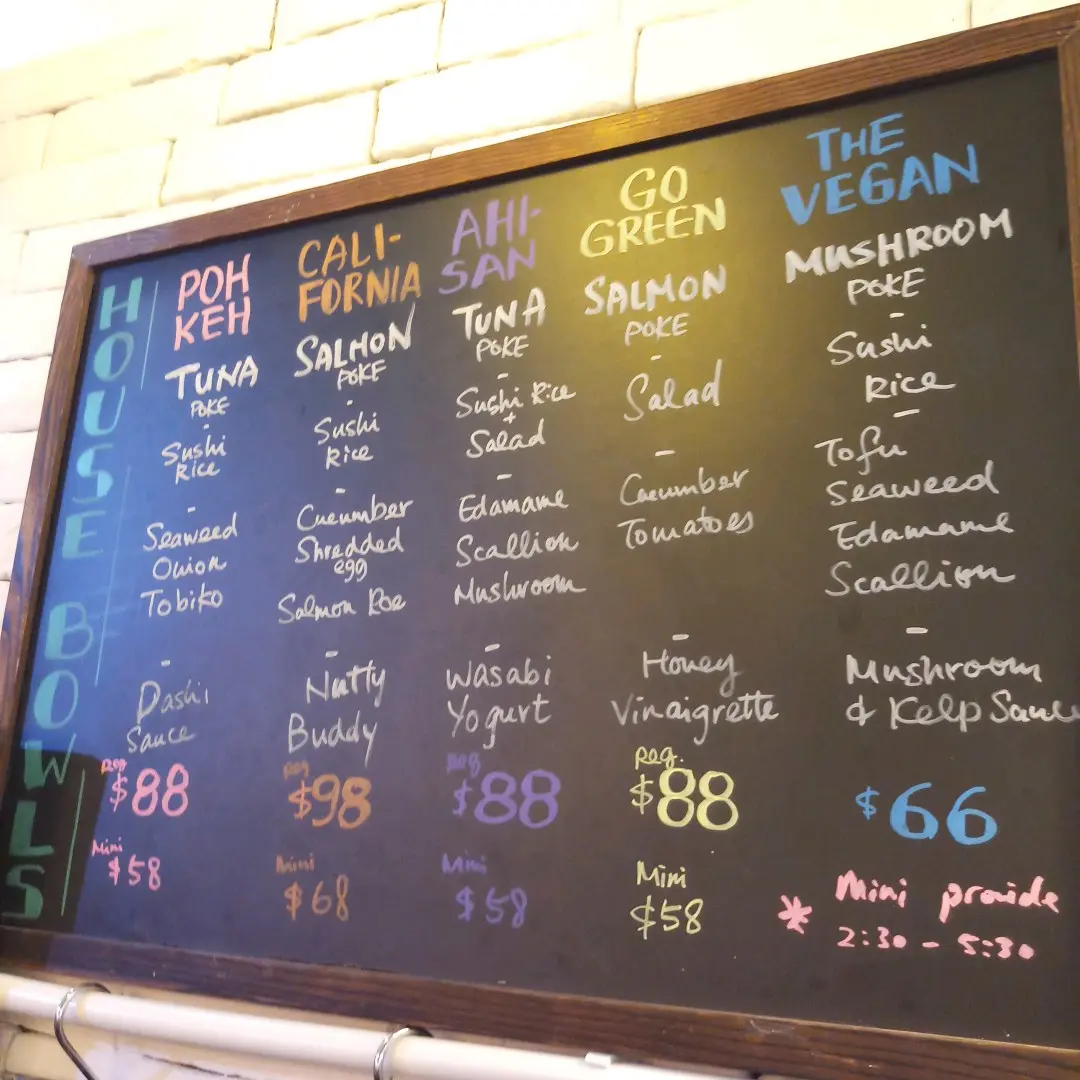 HOUSE BOWLS
POH
KEH
TUNA
POKE
-
Sushi
Rice
-
Seaweed
Onion
Tobiko
-
Dashi
Sauce
Reg
$88
Mini
$58
CALI-
FORNIA
SALMON
POKE
-
Sushi
Rice
-
Cucumber
Shredded
egg
Salmon Roe
-
Nutty
Buddy
Reg
$98
Mini
$68
AHI-
SAN
TUNA
POKE
-
Sushi Rice
+
Salad
-
Edamame
Scallion
Mushroom
-
Wasabi
Yogurt
Reg
$88
Mini
$58
GO
GREEN
SALMON
POKE
-
Salad
-
Cucumber
Tomatoes
-
Honey
Vinaigrette
Reg.
$88
Mini
$58
THE
VEGAN
MUSHROOM
POKE
-
Sushi
Rice
-
Tofu
Seaweed
Edamame
Scallion
-
Mushroom
& Kelp Sauce
$66
* Mini provide
2:30 - 5:30